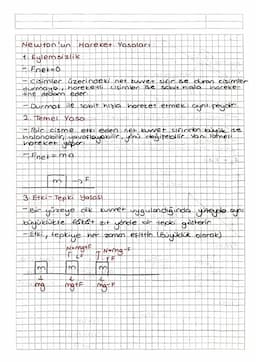 Newton'un Hareket Yasaları
1. Eylemsizlik
- Fnet=0
- Cisimler üzerindeki net kuvvet sıfır ise duran cisimler
durmaya, hareketli cisimler ise sabit hızla hareke-
tine devam eder.
- Durmak ile sabit hızla hareket etmek aynı şeydir.
2. Temel Yasa
- Bir cisme etki eden net kuvvet sıfırdan büyük ise
hızlanabilir, yavaşlayabilir, yönü değişebilir. Yani ivmeli
hareket yapar.
- Fnet = ma
m → F
3. Etki-Tepki Yasası
- Bir yüzeye dik kuvvet uygulandığında yüzeyde aynı
büyüklükte zıt yönde bir tepki gösterir.
- Etki, tepkiye her zaman eşittir (Büyüklük olarak)
N=mg+F N=mg-F
↓F ↑F
m m m
mg mg+F mg-F